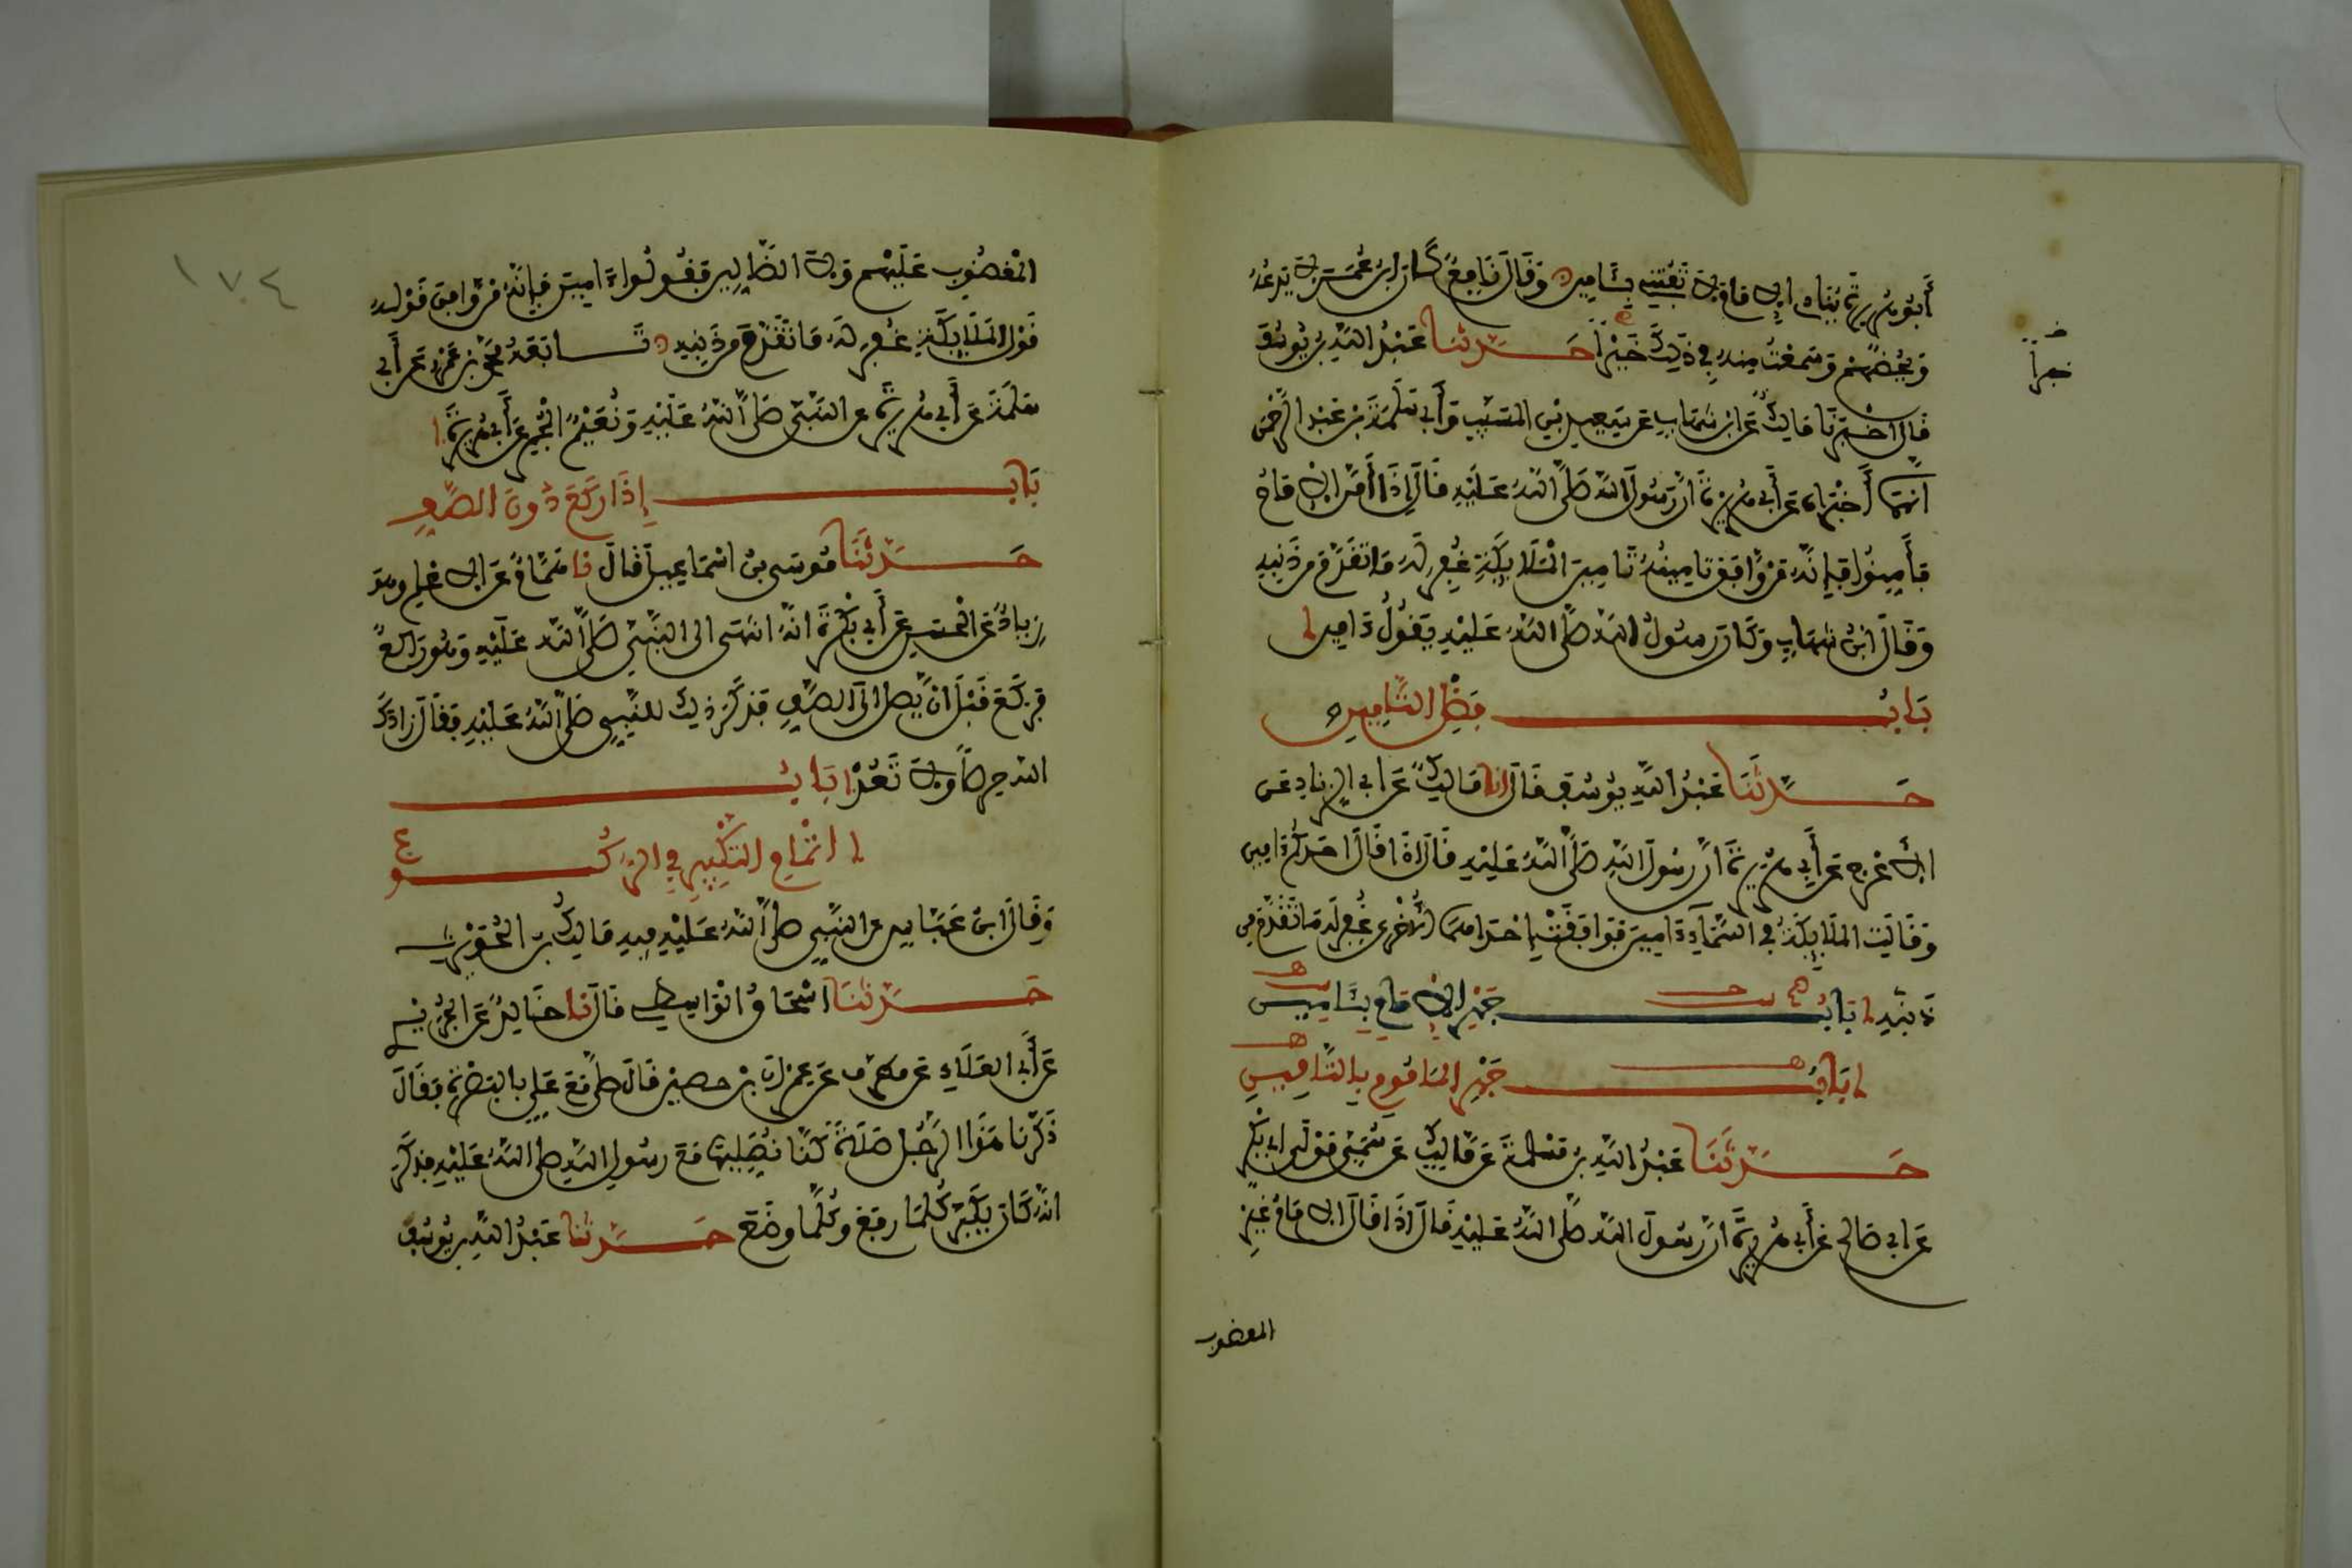 أَبُو هُرَيْرَةَ يُنَادِي الإِمَامَ لاَ تَفُتْنِي بِئَامِينَ وَقَالَ نَافِعٌ كَانَ ابْنُ عُمَرَ لاَ يَدَعُهُ
وَيَحُضُّهُمْ وَسَمِعْتُ مِنْهُ فِي ذَلِكَ خَيْراً حَدَّثَنَا عَبْدُ اللَّهِ بْنُ يُوسُفَ
خبراً
قَالَ أَخْبَرَنَا مَالِكٌ عَنِ ابْنِ شِهَابٍ عَنْ سَعِيدِ بْنِ المُسَيِّبِ وَأَبِي سَلَمَةَ بْنِ عَبْدِ الرَّحْمَنِ
أَنَّهُمَا أَخْبَرَاهُ عَنْ أَبِي هُرَيْرَةَ أَنَّ رَسُولَ اللَّهِ صَلَّى اللَّهُ عَلَيْهِ قَالَ إِذَا أَمَّنَ الإِمَامُ
فَأَمِّنُوا فَإِنَّهُ مَنْ وَافَقَ تَامِينُهُ تَامِينَ الْمَلاَئِكَةِ غُفِرَ لَهُ مَا تَقَدَّمَ مِنْ ذَنْبِهِ
وَقَالَ ابْنُ شِهَابٍ وَكَانَ رَسُولُ اللَّهِ صَلَّى اللَّهُ عَلَيْهِ يَقُولُ ءَامِينَ
بَابُ فَضْلِ التَّامِينِ
حَدَّثَنَا عَبْدُ اللَّهِ بْنُ يُوسُفَ قَالَ أَنَا مَالِكٌ عَنْ أَبِي الزِّنَادِ عَنِ
الأَعْرَجِ عَنْ أَبِي هُرَيْرَةَ أَنَّ رَسُولَ اللَّهِ صَلَّى اللَّهُ عَلَيْهِ قَالَ إِذَا قَالَ أَحَدُكُمْ ءَامِينَ
وَقَالَتِ الْمَلاَئِكَةُ فِي السَّمَاءِ ءَامِينَ فَوَافَقَتْ إِحْدَاهُمَا الأُخْرَى غُفِرَ لَهُ مَا تَقَدَّمَ مِن
ذَنْبِهِ بَابُ جَهْرِ الإِمَامِ بِئَامِينَ
بَابُ جَهْرِ المَامُومِ بِالتَّامِينِ
حَدَّثَنَا عَبْدُ اللَّهِ بْنُ مَسْلَمَةَ عَنْ مَالِكٍ عَنْ سُمَيٍّ مَوْلَى أَبِي بَكْرٍ
عَنْ أَبِي صَالِحٍ عَنْ أَبِي هُرَيْرَةَ أَنَّ رَسُولَ اللَّهِ صَلَّى اللَّهُ عَلَيْهِ قَالَ إِذَا قَالَ الإِمَامُ غَيْرِ
المغضوب
١٧٤
الْمَغْضُوبِ عَلَيْهِمْ وَلاَ الضَّالِّينَ فَقُولُوا ءَامِينَ فَإِنَّهُ مَنْ وَافَقَ قَوْلُهُ
قَوْلَ الْمَلاَئِكَةِ غُفِرَ لَهُ مَا تَقَدَّمَ مِنْ ذَنْبِهِ تَابَعَهُ مُحَمَّدُ بْنُ عَمْرٍو عَنْ أَبِي
سَلَمَةَ عَنْ أَبِي هُرَيْرَةَ عَنِ النَّبِيِّ صَلَّى اللَّهُ عَلَيْهِ وَنُعَيْمٌ الْمُجْمِرُ عَنْ أَبِي هُرَيْرَةَ
بَابُ إِذَا رَكَعَ دُونَ الصَّفِّ
حَدَّثَنَا مُوسَى بْنُ إِسْمَاعِيلَ قَالَ نَا هَمَّامٌ عَنِ الأَعْلَمِ وَهُوَ
زِيَادٌ عَنِ الْحَسَنِ عَنْ أَبِي بَكْرَةَ أَنَّهُ انْتَهَى إِلَى النَّبِيِّ صَلَّى اللَّهُ عَلَيْهِ وَهُوَ رَاكِعٌ
فَرَكَعَ قَبْلَ أَنْ يَصِلَ إِلَى الصَّفِّ فَذَكَرَ ذَلِكَ لِلنَّبِيِّ صَلَّى اللَّهُ عَلَيْهِ فَقَالَ زَادَكَ
اللَّهُ حِرْصاً وَلاَ تَعُدْ بَابُ
إِتْمَامِ التَّكْبِيرِ فِي الرُّكُوعِ
وَقَالَ ابْنُ عَبَّاسٍ عَنِ النَّبِيِّ صَلَّى اللَّهُ عَلَيْهِ فِيهِ مَالِكُ بْنُ الحُوَيْرِثِ
حَدَّثَنَا إِسْحَاقُ الْوَاسِطِي قَالَ نَا خَالِدٌ عَنِ الجُرَيْرِيِّ
عَنْ أَبِي العَلاَءِ عَنْ مُطَرِّفٍ عَنْ عِمْرَانَ بْنِ حُصَيْنٍ قَالَ صَلَّى مَعَ عَلِيٍّ بِالبَصْرَةِ فَقَالَ
ذَكَّرَنَا هَذَا الرَّجُلُ صَلاَةً كُنَّا نُصَلِّيهَا مَعَ رَسُولِ اللَّهِ صَلَّى اللَّهُ عَلَيْهِ فَذَكَرَ
أَنَّهُ كَانَ يُكَبِّرُ كُلَّمَا رَفَعَ وَكُلَّمَا وَضَعَ حَدَّثَنَا عَبْدُ اللَّهِ بْنُ يُوسُفَ